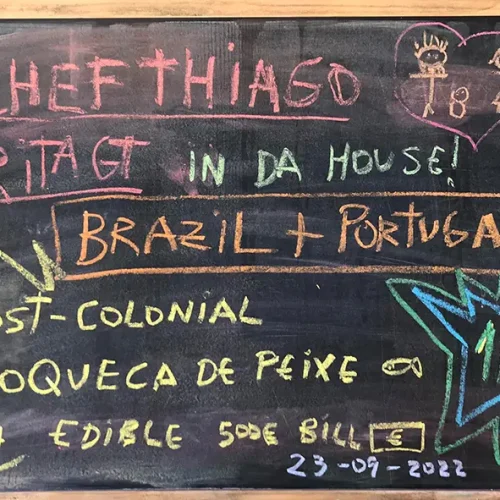 HEF THIAGO
RITA GT IN DA HOUSE!
BRAZIL + PORTUGA
OST-COLONIAL
OQUECA DE PEIXE
EDIBLE 500€ BILL €
23-09-2022